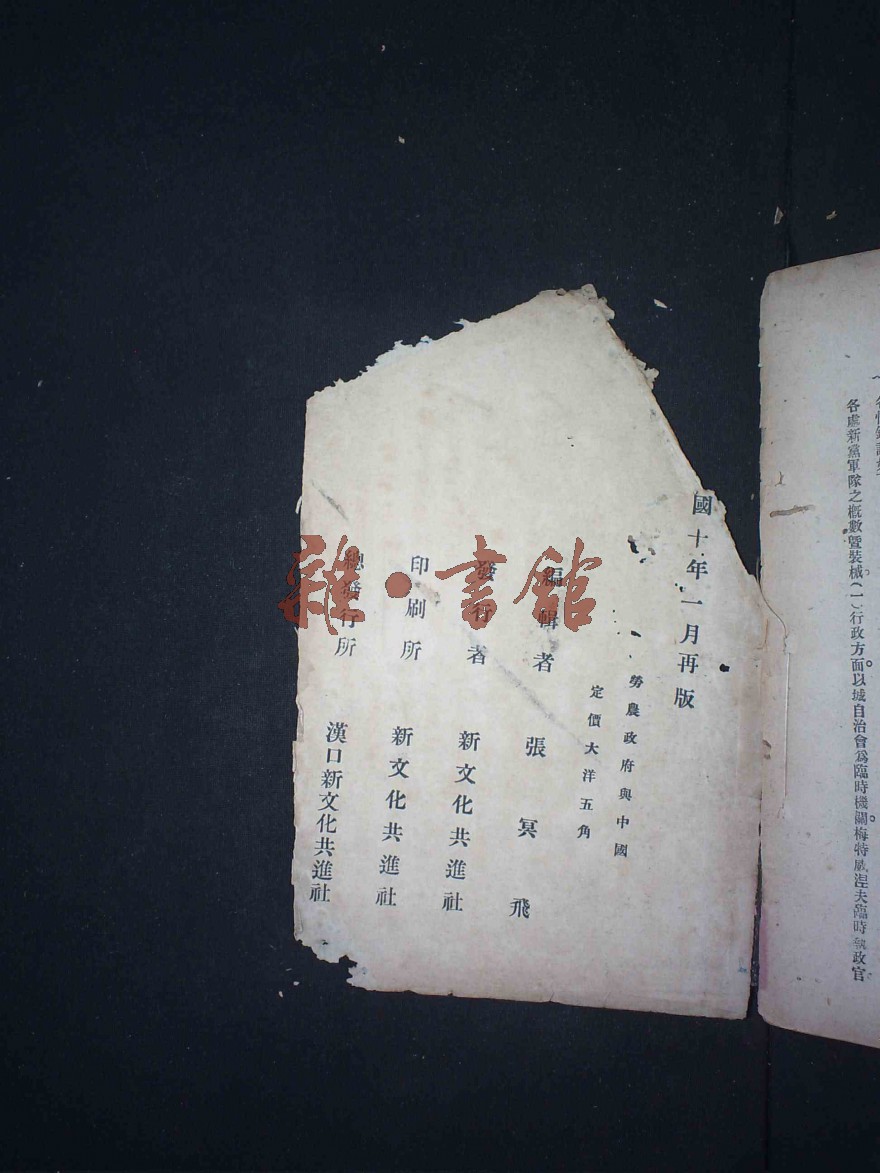 國十年一月再版
勞農政府與中國
定價大洋五角
編輯者 張冥飛
發行者 新文化共進社
印刷所 新文化共進社
總發行所 漢口新文化共進社
各處新黨軍隊之概數暨裝械(一)行政方面以城自治會爲臨時機關梅特戚涅夫臨時執政官
雜·書館